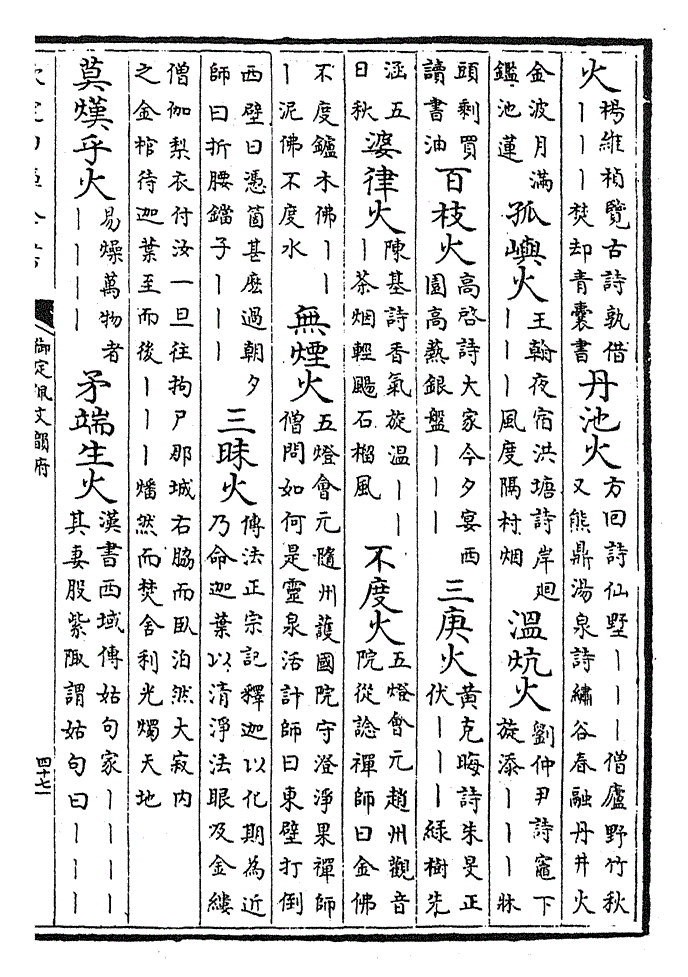 火楊維楨覽古詩孰借｜｜｜焚却青囊書丹池火方回詩仙墅｜｜｜僧廬野竹秋又熊鼎湯泉詩繡谷春融丹井火
金波月滿鑑池蓮孤嶼火王翰夜宿洪塘詩岸迴｜｜｜風度隔村烟溫炕火劉仲尹詩竈下旋添｜｜｜牀
頭剩買讀書油百枝火高啓詩大家今夕宴西園高爇銀盤｜｜｜三庚火黃克晦詩朱旻正伏｜｜｜綠樹先
涵五日秋婆律火陳基詩香氣旋溫｜｜｜茶烟輕颺石榴風不度火五燈會元趙州觀音院從諗禪師曰金佛
不度鑪木佛｜｜｜泥佛不度水無煙火五燈會元隨州護國院守澄淨果禪師僧問如何是靈泉活計師曰東壁打倒
西壁曰憑箇甚麽過朝夕師曰折腰鐺子｜｜｜三昧火傳法正宗記釋迦以化期為近乃命迦葉以清淨法眼及金縷
僧伽梨衣付汝一旦往拘尸那城右脇而臥泊然大寂内之金棺待迦葉至而後｜｜｜燔然而焚舍利光燭天地
莫熯乎火易燥萬物者｜｜｜｜矛端生火漢書西域傳姑句家｜｜｜｜其妻股紫陬謂姑句曰｜｜｜
御定佩文韻府
四十七